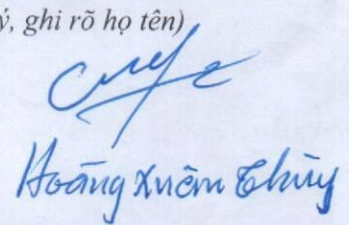 ý, ghi rõ họ tên)
Hoàng Xuân Thùy